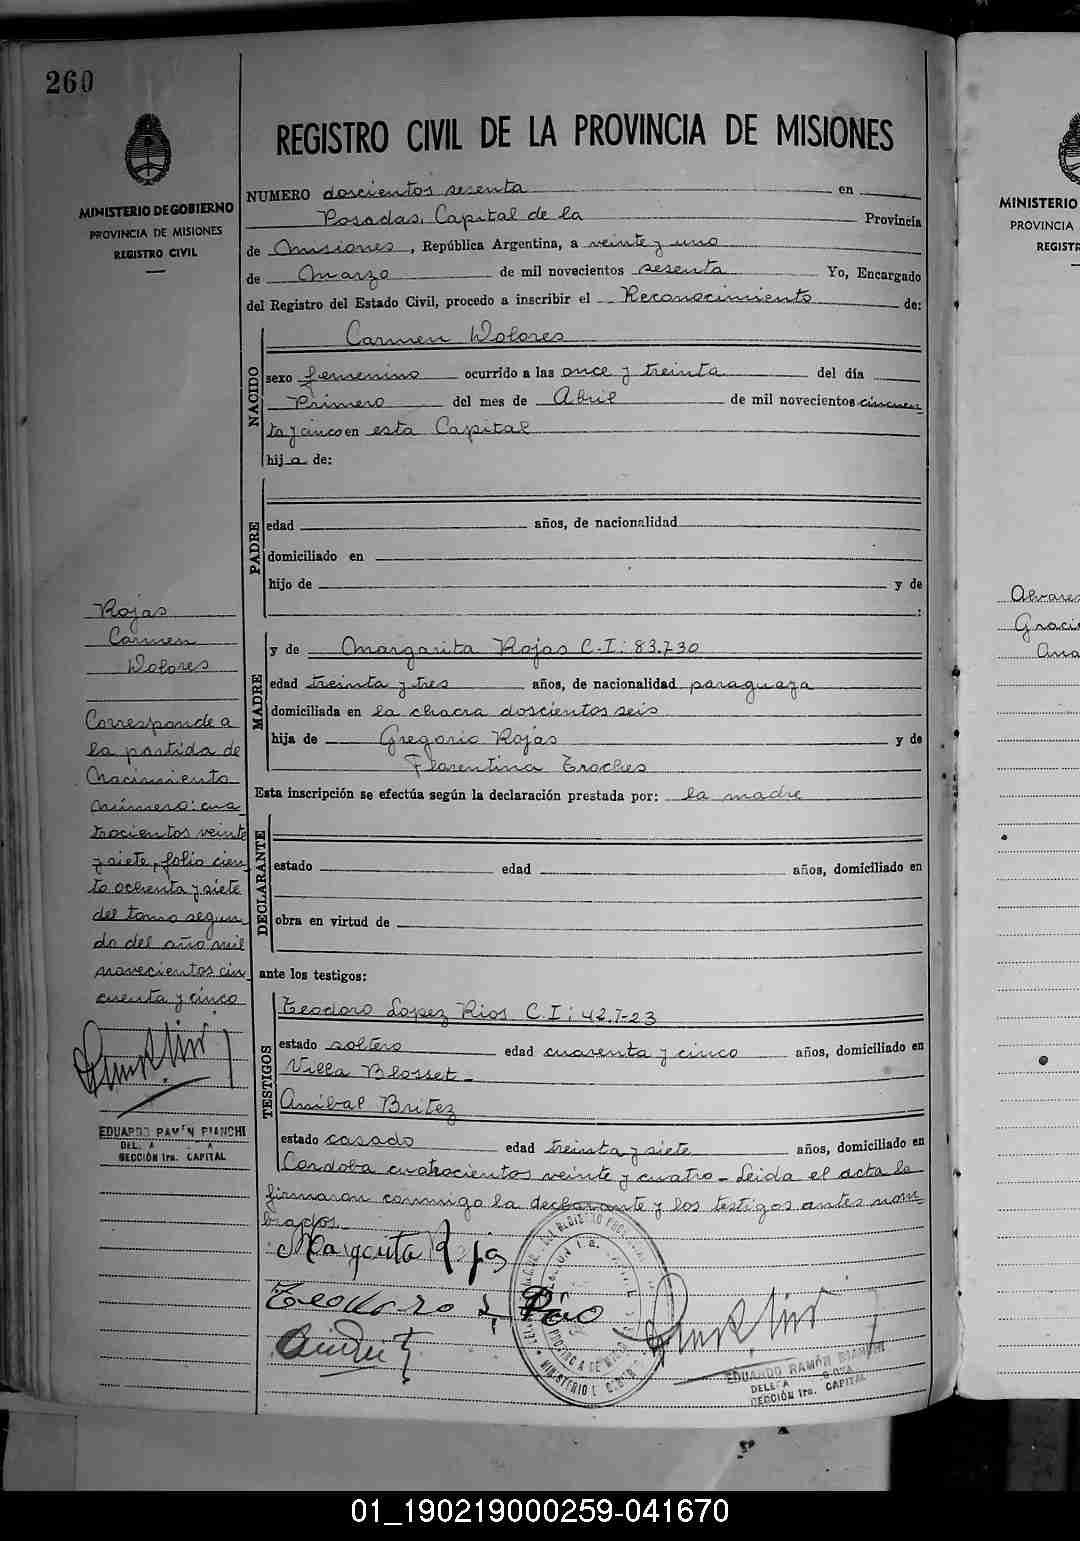 260
REGISTRO CIVIL DE LA PROVINCIA DE MISIONES
MINISTERIO DE GOBIERNO
PROVINCIA DE MISIONES
REGISTRO CIVIL
NUMERO doscientos sesenta en
Posadas, Capital de la Provincia
de Misiones, República Argentina, a veinte y uno
de Marzo de mil novecientos sesenta Yo, Encargado
del Registro del Estado Civil, procedo a inscribir el Reconocimiento de:
NACIDO
Carmen Dolores
sexo femenino ocurrido a las once y treinta del día
Primero del mes de Abril de mil novecientos cincuen
ta y cinco en esta Capital
hija de:
PADRE
edad años, de nacionalidad
domiciliado en
hijo de y de
:
MADRE
y de Margarita Rojas C.I: 83.730
edad treinta y tres años, de nacionalidad paraguaya
domiciliada en la chacra doscientos seis
hija de Gregorio Rojas y de
Florentina Troches
Esta inscripción se efectúa según la declaración prestada por: la madre
DECLARANTE
estado edad años, domiciliado en
obra en virtud de
ante los testigos:
TESTIGOS
Teodoro Lopez Rios C.I: 42.723
estado soltero edad cuarenta y cinco años, domiciliado en
Villa Blosset-
Anibal Britez
estado casado edad treinta y siete años, domiciliado en
Cordoba cuatrocientos veinte y cuatro- Leida el acta la
firmaron conmigo la declarante y los testigos antes nom
brados.
Margarita Rojas
Teodoro L. Rio
EDUARDO RAMÓN BIANCHI
SECCIÓN 1ra. CAPITAL
Rojas
Carmen
Dolores
Corresponde a
la partida de
Nacimiento
número: cua
trocientos veinte
y siete, folio cien
to ochenta y siete
del tomo segun
do del año mil
novecientos cin
cuenta y cinco
EDUARDO RAMÓN BIANCHI
SECCIÓN 1ra. CAPITAL
MINISTERIO
PROVINCIA
REGISTR
Alvarez
Graci
Ana
01_190219000259-041670